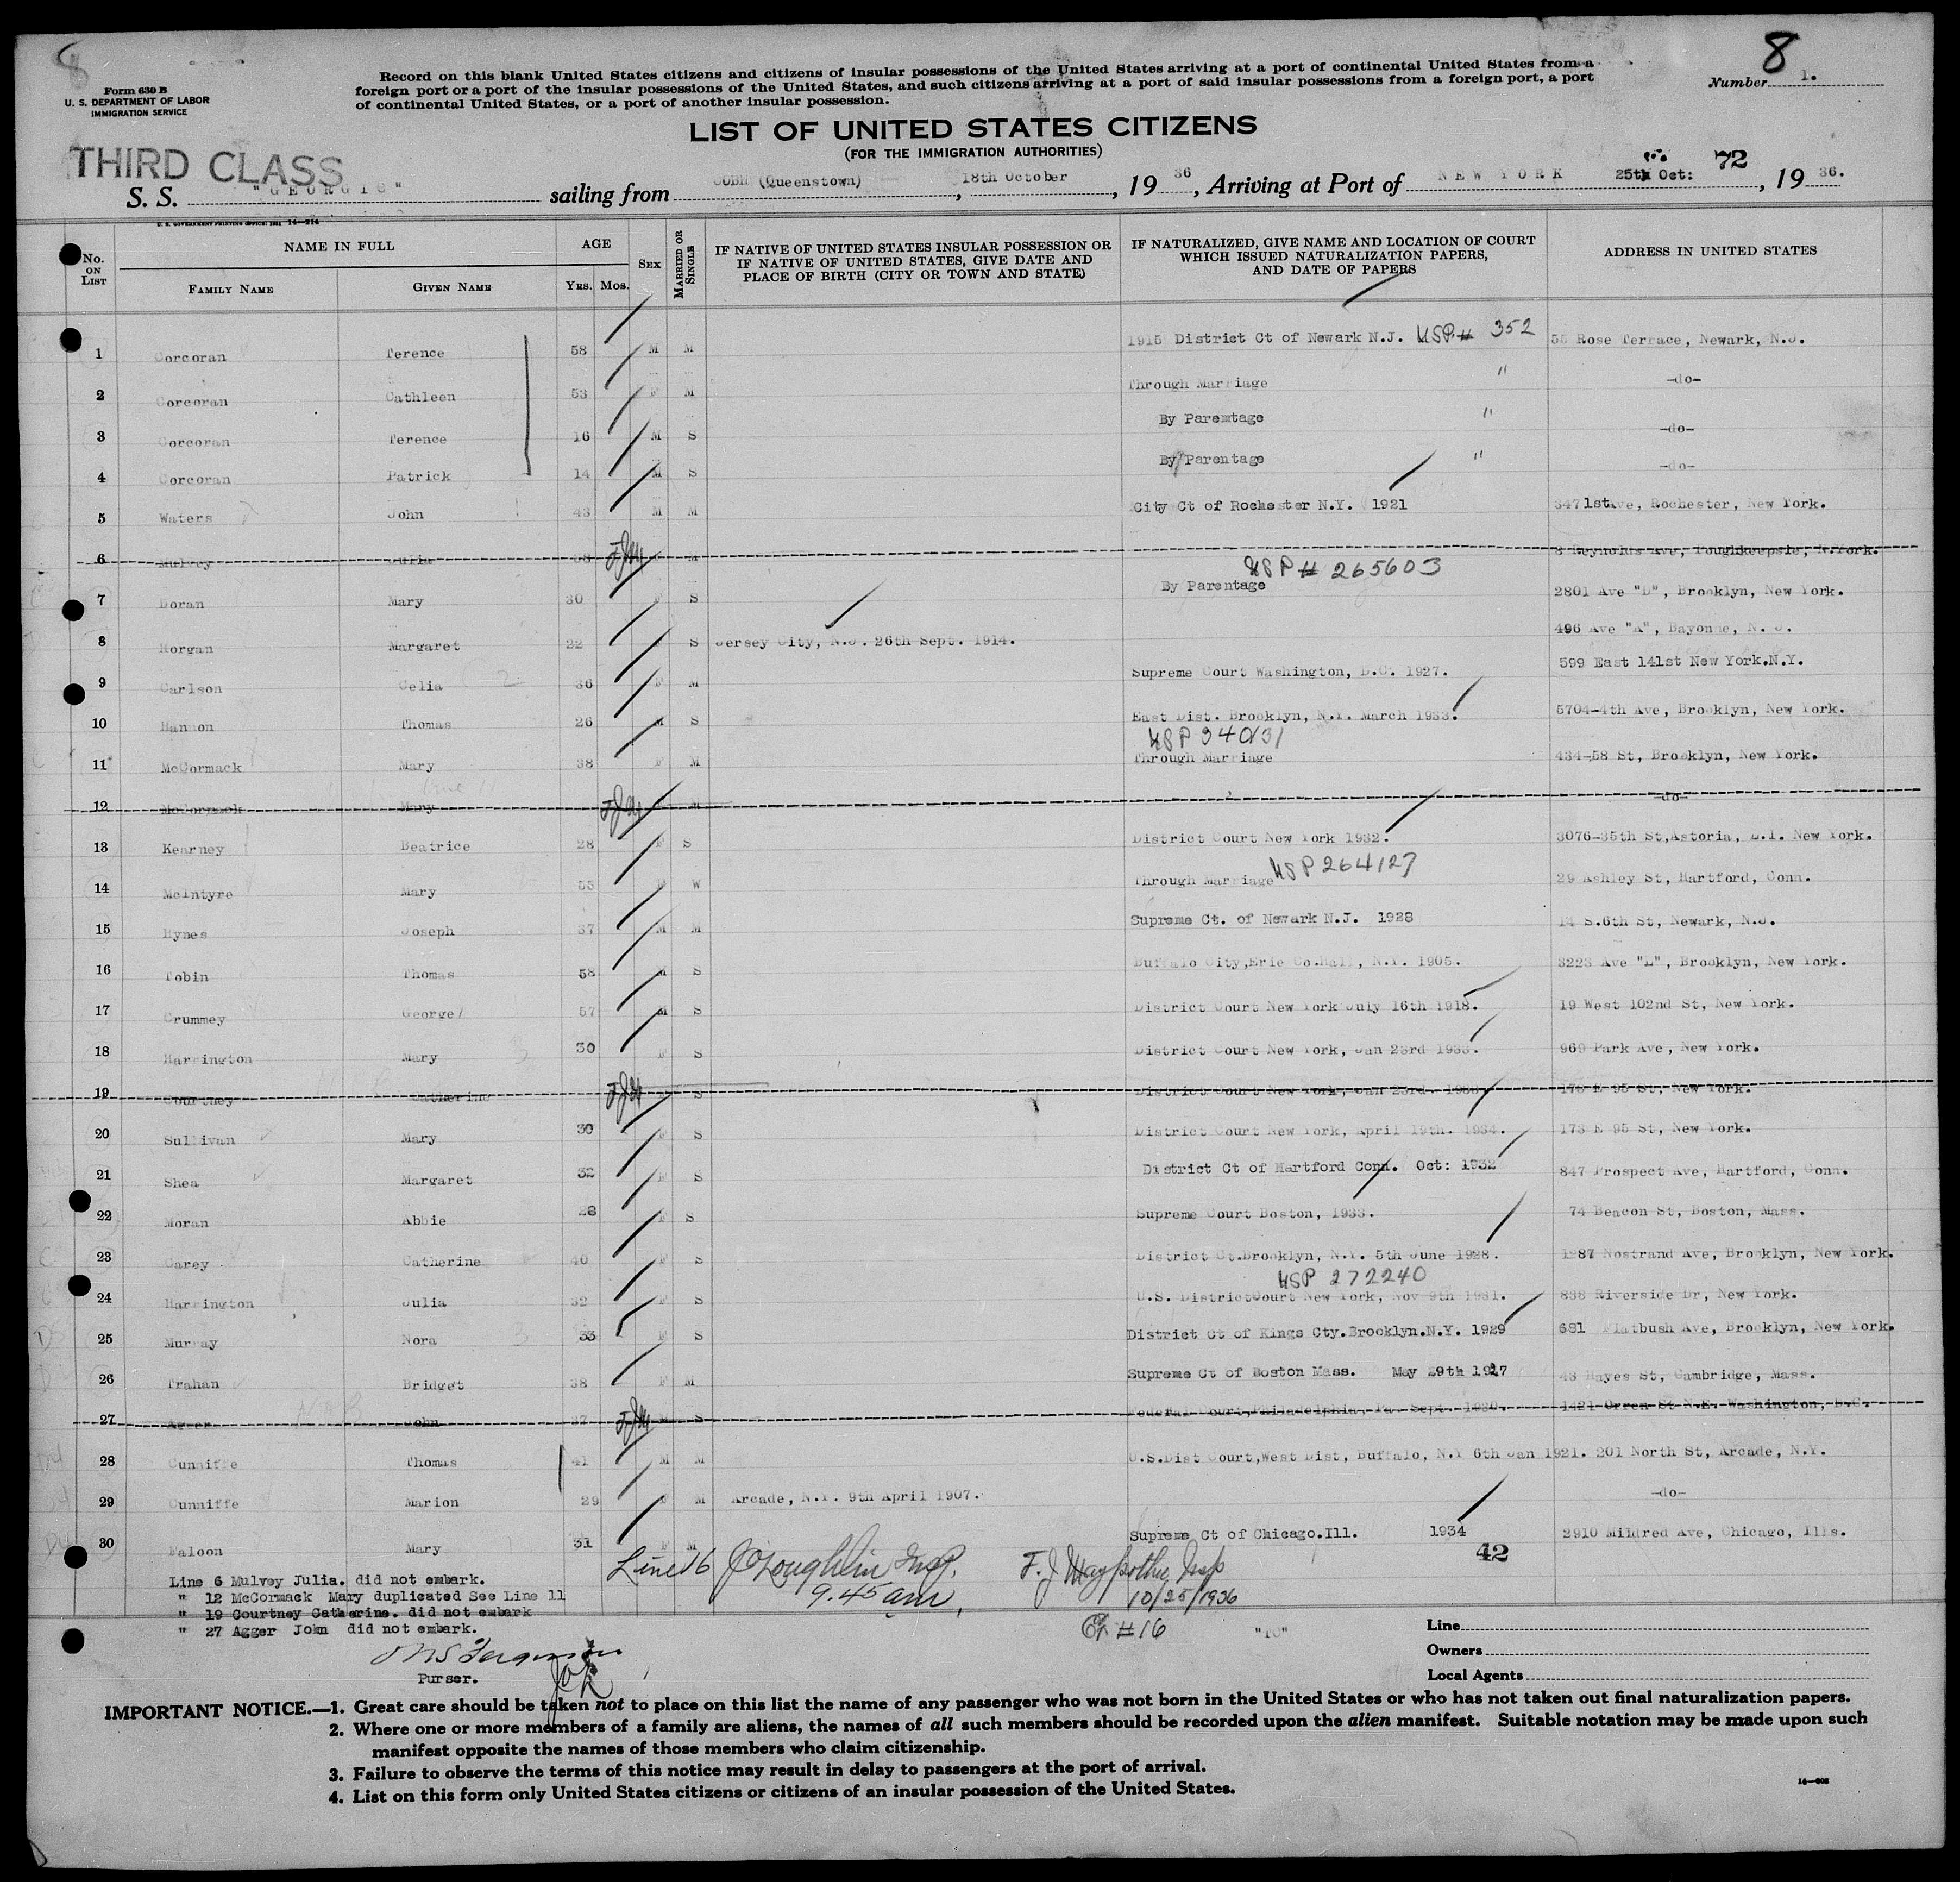 8
8
Number 1.
Form 630 B
U. S. DEPARTMENT OF LABOR
IMMIGRATION SERVICE
Record on this blank United States citizens and citizens of insular possessions of the United States arriving at a port of continental United States from a
foreign port or a port of the insular possessions of the United States, and such citizens arriving at a port of said insular possessions from a foreign port, a port
of continental United States, or a port of another insular possession.
LIST OF UNITED STATES CITIZENS
(FOR THE IMMIGRATION AUTHORITIES)
THIRD CLASS
72
S. S. "GEORGIC" sailing from COBH (Queenstown), 18th October, 1936, Arriving at Port of NEW YORK 25th Oct:, 1936.
U. S. GOVERNMENT PRINTING OFFICE: 1931 14—214
No. ON LIST
NAME IN FULL
FAMILY NAME
GIVEN NAME
AGE
YRS. MOS.
SEX
MARRIED OR SINGLE
IF NATIVE OF UNITED STATES INSULAR POSSESSION OR
IF NATIVE OF UNITED STATES, GIVE DATE AND
PLACE OF BIRTH (CITY OR TOWN AND STATE)
IF NATURALIZED, GIVE NAME AND LOCATION OF COURT
WHICH ISSUED NATURALIZATION PAPERS,
AND DATE OF PAPERS
ADDRESS IN UNITED STATES
1 Corcoran Terence 58 M M 1915 District Ct of Newark N.J. USP# 352 55 Rose Terrace, Newark, N.J.
2 Corcoran Cathleen 53 F M Through Marriage " -do-
3 Corcoran Terence 16 M S By Parentage " -do-
4 Corcoran Patrick 14 M S By Parentage " -do-
5 Waters John 43 M M City Ct of Rochester N.Y. 1921 347 1st Ave, Rochester, New York.
6 Mulvey Julia M 8 Reynolds Ave, Poughkeepsie, N.York.
7 Doran Mary 30 F S By Parentage USP # 265603 2801 Ave "D", Brooklyn, New York.
8 Horgan Margaret 22 F S Jersey City, N.J. 26th Sept. 1914. 496 Ave "A", Bayonne, N. J.
9 Carlson Celia 36 F M Supreme Court Washington, D.C. 1927. 599 East 141st New York.N.Y.
10 Hannon Thomas 26 M S East Dist. Brooklyn, N.Y. March 1933. 5704-4th Ave, Brooklyn, New York.
11 McCormack Mary 38 F M USP 340131 Through Marriage 434-58 St, Brooklyn, New York.
12 McCormack Mary line 11 M -do-
13 Kearney Beatrice 28 F S District Court New York 1932. 3076-35th St,Astoria, L.I. New York.
14 McIntyre Mary 55 F W Through Marriage USP 264127 29 Ashley St, Hartford, Conn.
15 Hynes Joseph 37 M M Supreme Ct. of Newark N.J. 1928 14 S.6th St, Newark, N.J.
16 Tobin Thomas 58 M S Buffalo City,Erie Co.Hall, N.Y. 1905. 3223 Ave "L", Brooklyn, New York.
17 Crummey George 57 M S District Court New York July 16th 1918. 19 West 102nd St, New York.
18 Harrington Mary 30 F S District Court New York, Jan 23rd 1933. 969 Park Ave, New York.
19 Courtney Catherine S District Court New York, Jan 23rd. 173 E 95 St, New York.
20 Sullivan Mary 30 F S District Court New York, April 19th. 1934. 173 E 95 St, New York.
21 Shea Margaret 32 F S District Ct of Hartford Conn. Oct: 1932 847 Prospect Ave, Hartford, Conn.
22 Moran Abbie 28 F S Supreme Court Boston, 1933. 74 Beacon St, Boston, Mass.
23 Carey Catherine 40 F S District Ct.Brooklyn, N.Y. 5th June 1928. 1287 Nostrand Ave, Brooklyn, New York.
24 Harrington Julia 32 F S USP 272240 U.S. District Court New York, Nov 9th 1931. 838 Riverside Dr, New York.
25 Murray Nora 33 F S District Ct of Kings Cty.Brooklyn.N.Y. 1929 681 Flatbush Ave, Brooklyn, New York.
26 Trahan Bridget 38 F M Supreme Ct of Boston Mass. May 29th 1927 43 Hayes St, Cambridge, Mass.
27 Agger John 37 S Federal Court,Philadelphia, Pa. Sept. 1930. 1421 Orren St N.E. Washington, D.C.
28 Cunniffe Thomas 41 M M U.S.Dist Court,West Dist, Buffalo, N.Y 6th Jan 1921. 201 North St, Arcade, N.Y.
29 Cunniffe Marion 29 F M Arcade, N.Y. 9th April 1907. -do-
30 Faloon Mary 31 F M Supreme Ct of Chicago.Ill. 1934 2910 Mildred Ave, Chicago, Ills.
42
Line 6 Mulvey Julia. did not embark.
" 12 McCormack Mary duplicated See Line 11
" 19 Courtney Catherine. did not embark
" 27 Agger John did not embark.
Purser.
Line 16 J O'Loughlin Insp.
9.45 am,
F. J. Insp
10/25/1936
#16
Line
Owners
Local Agents
IMPORTANT NOTICE.—1. Great care should be taken not to place on this list the name of any passenger who was not born in the United States or who has not taken out final naturalization papers.
2. Where one or more members of a family are aliens, the names of all such members should be recorded upon the alien manifest. Suitable notation may be made upon such
manifest opposite the names of those members who claim citizenship.
3. Failure to observe the terms of this notice may result in delay to passengers at the port of arrival.
4. List on this form only United States citizens or citizens of an insular possession of the United States.